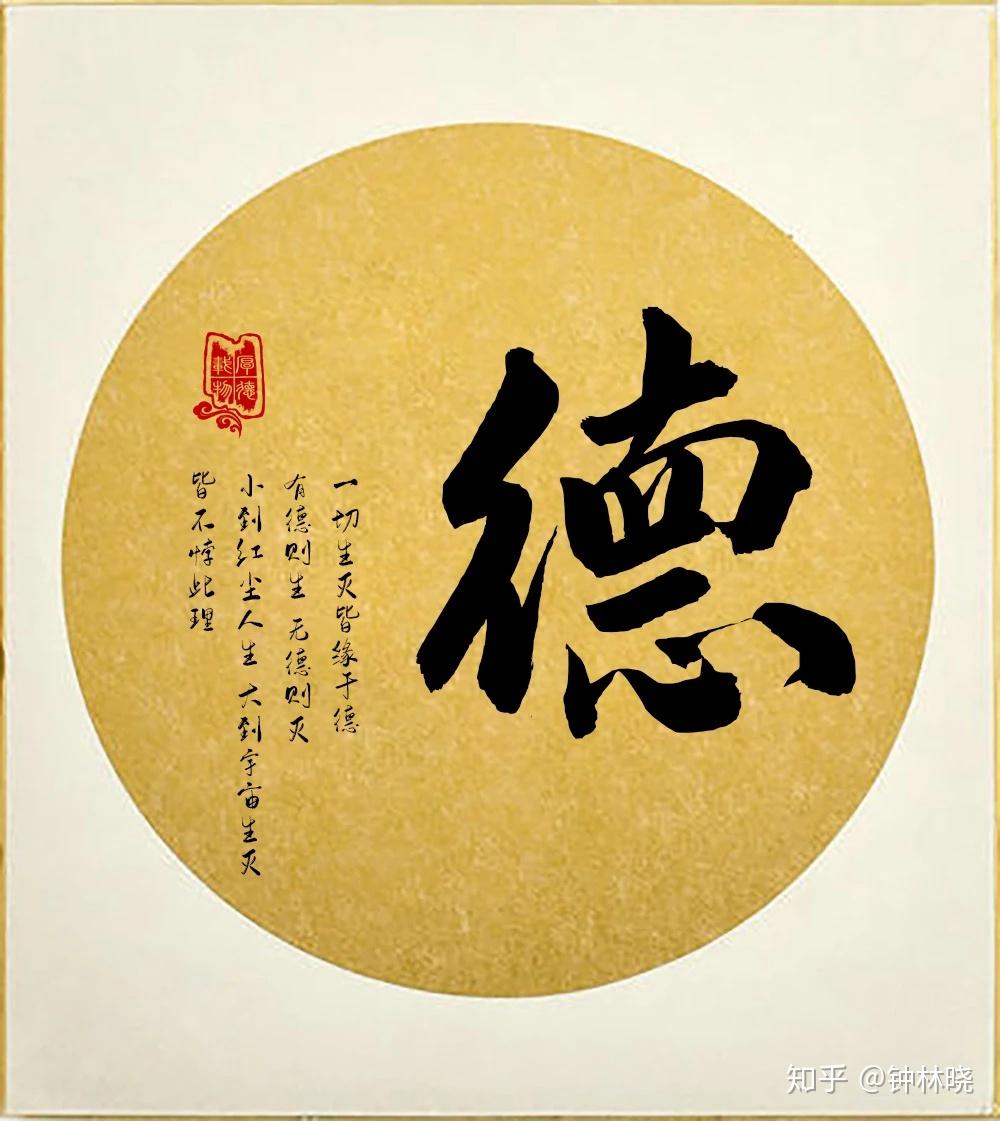 德
一切生灭皆缘于德
有德则生 无德则灭
小到红尘人生 大到宇宙生灭
皆不悖此理
厚德
載物
知乎 @钟林晓